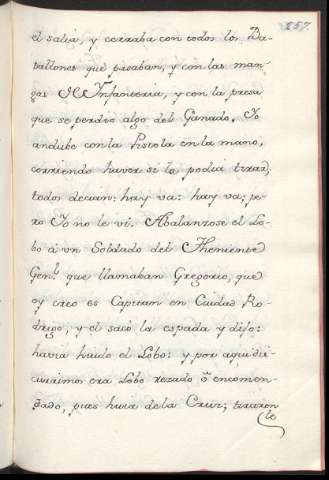 257.
el salia, y cerraba con todos los Ba-
tallones que pasaban, y con las man-
gas de Ynfanteria, y con la presa
que se perdio algo del Ganado. Yo
andube con la Pistola en la mano,
corriendo haver si le podia tirar,
todos decian: hay va: hay va; pe-
ro Yo no le vi. Abalanzose el Lo-
bo á un Soldado del Theniente
Genl. que llamaban Gregorio, que
oy creo es Capitan en Ciudad Ro-
drigo, y el sacó la espada y dijo:
havia huido el Lobo: y por aqui dis-
currimos era Lobo rezado ó encomen-
dado, pues huia de la Cruz; tiraron
le